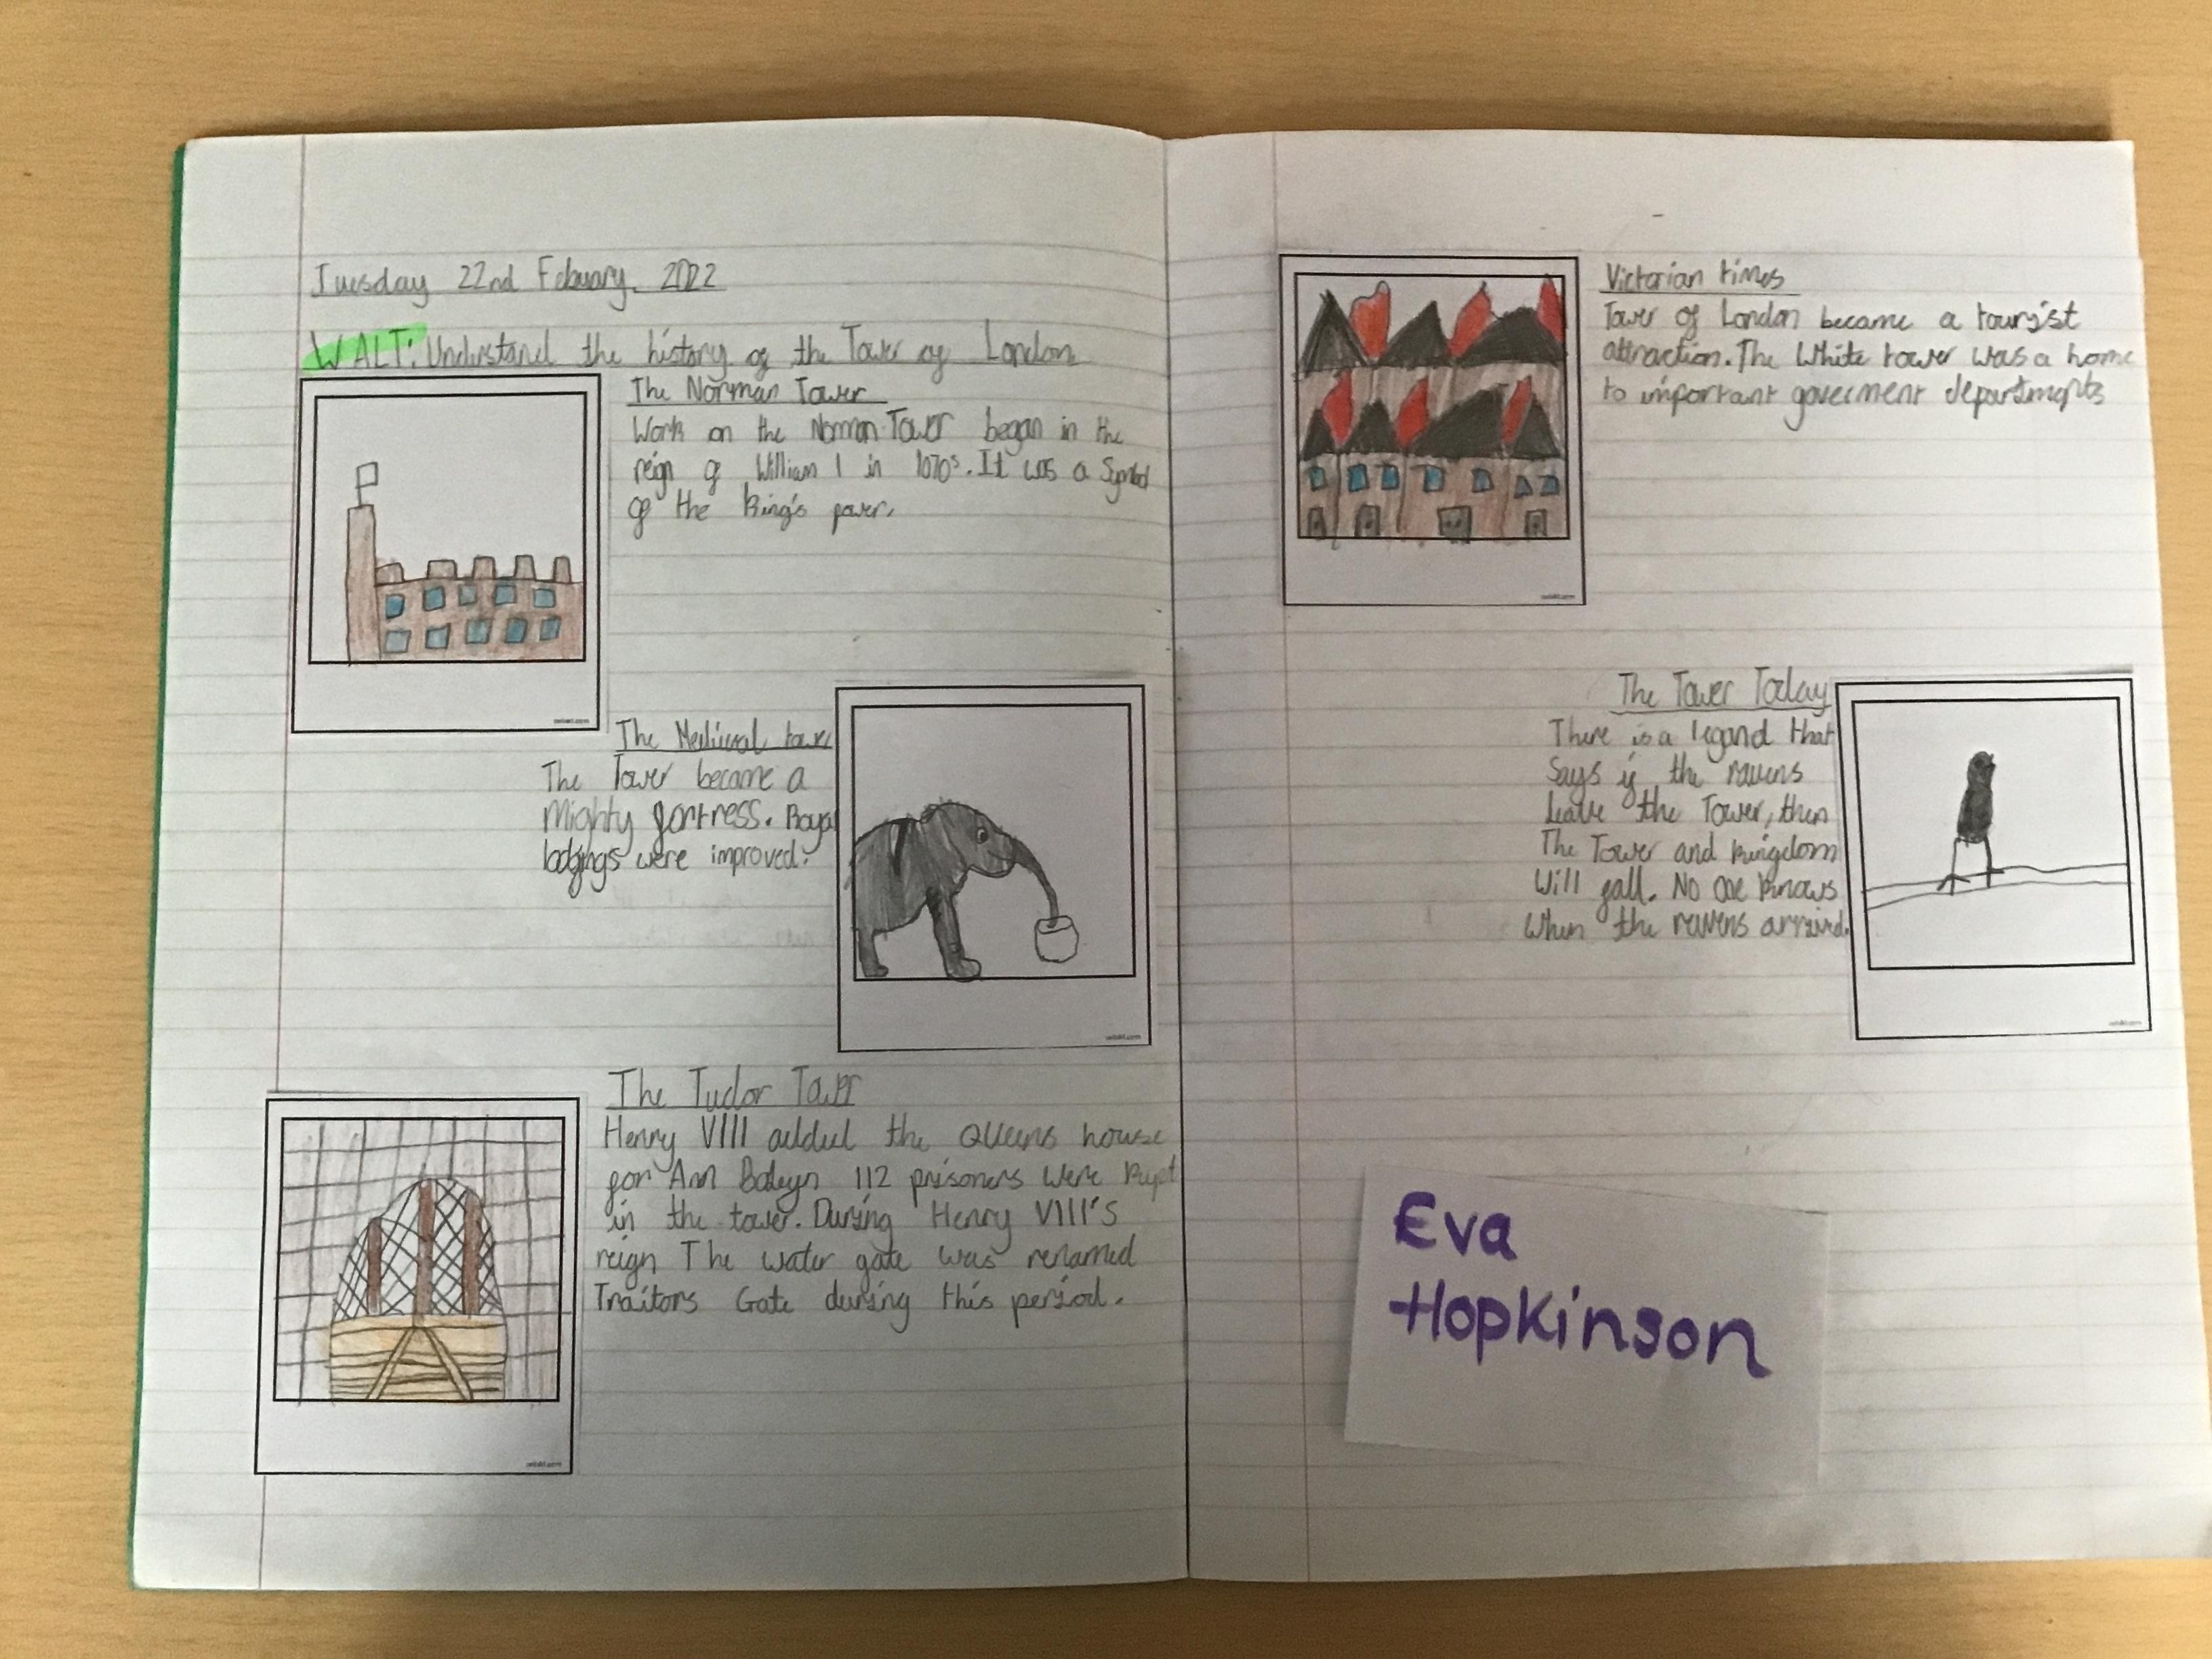 Tuesday 22nd Febuary. 2022
WALT: Understand the history of the Tower of London
The Norman Tower
Work on the Norman Tower began in the
reign of William I in 1070s. It was a Symbol
of the King's power.
The Medieval tower
The Tower became a
Mighty fortress. Royal
lodgings were improved.
The Tudor Tower
Henry VIII added the Queens house
for Ann Boleyn 112 prisoners were kept
in the tower. During Henry VIII's
reign The water gate was renamed
Traitors Gate during this period.
Victorian times
Tower of London became a tourist
attraction. The White tower was a home
to important goverment departments
The Tower Today
There is a legand that
Says if the ravens
Leave the Tower, then
The Tower and kingdom
Will fall. No one knows
When the ravens arrived.
Eva
Hopkinson